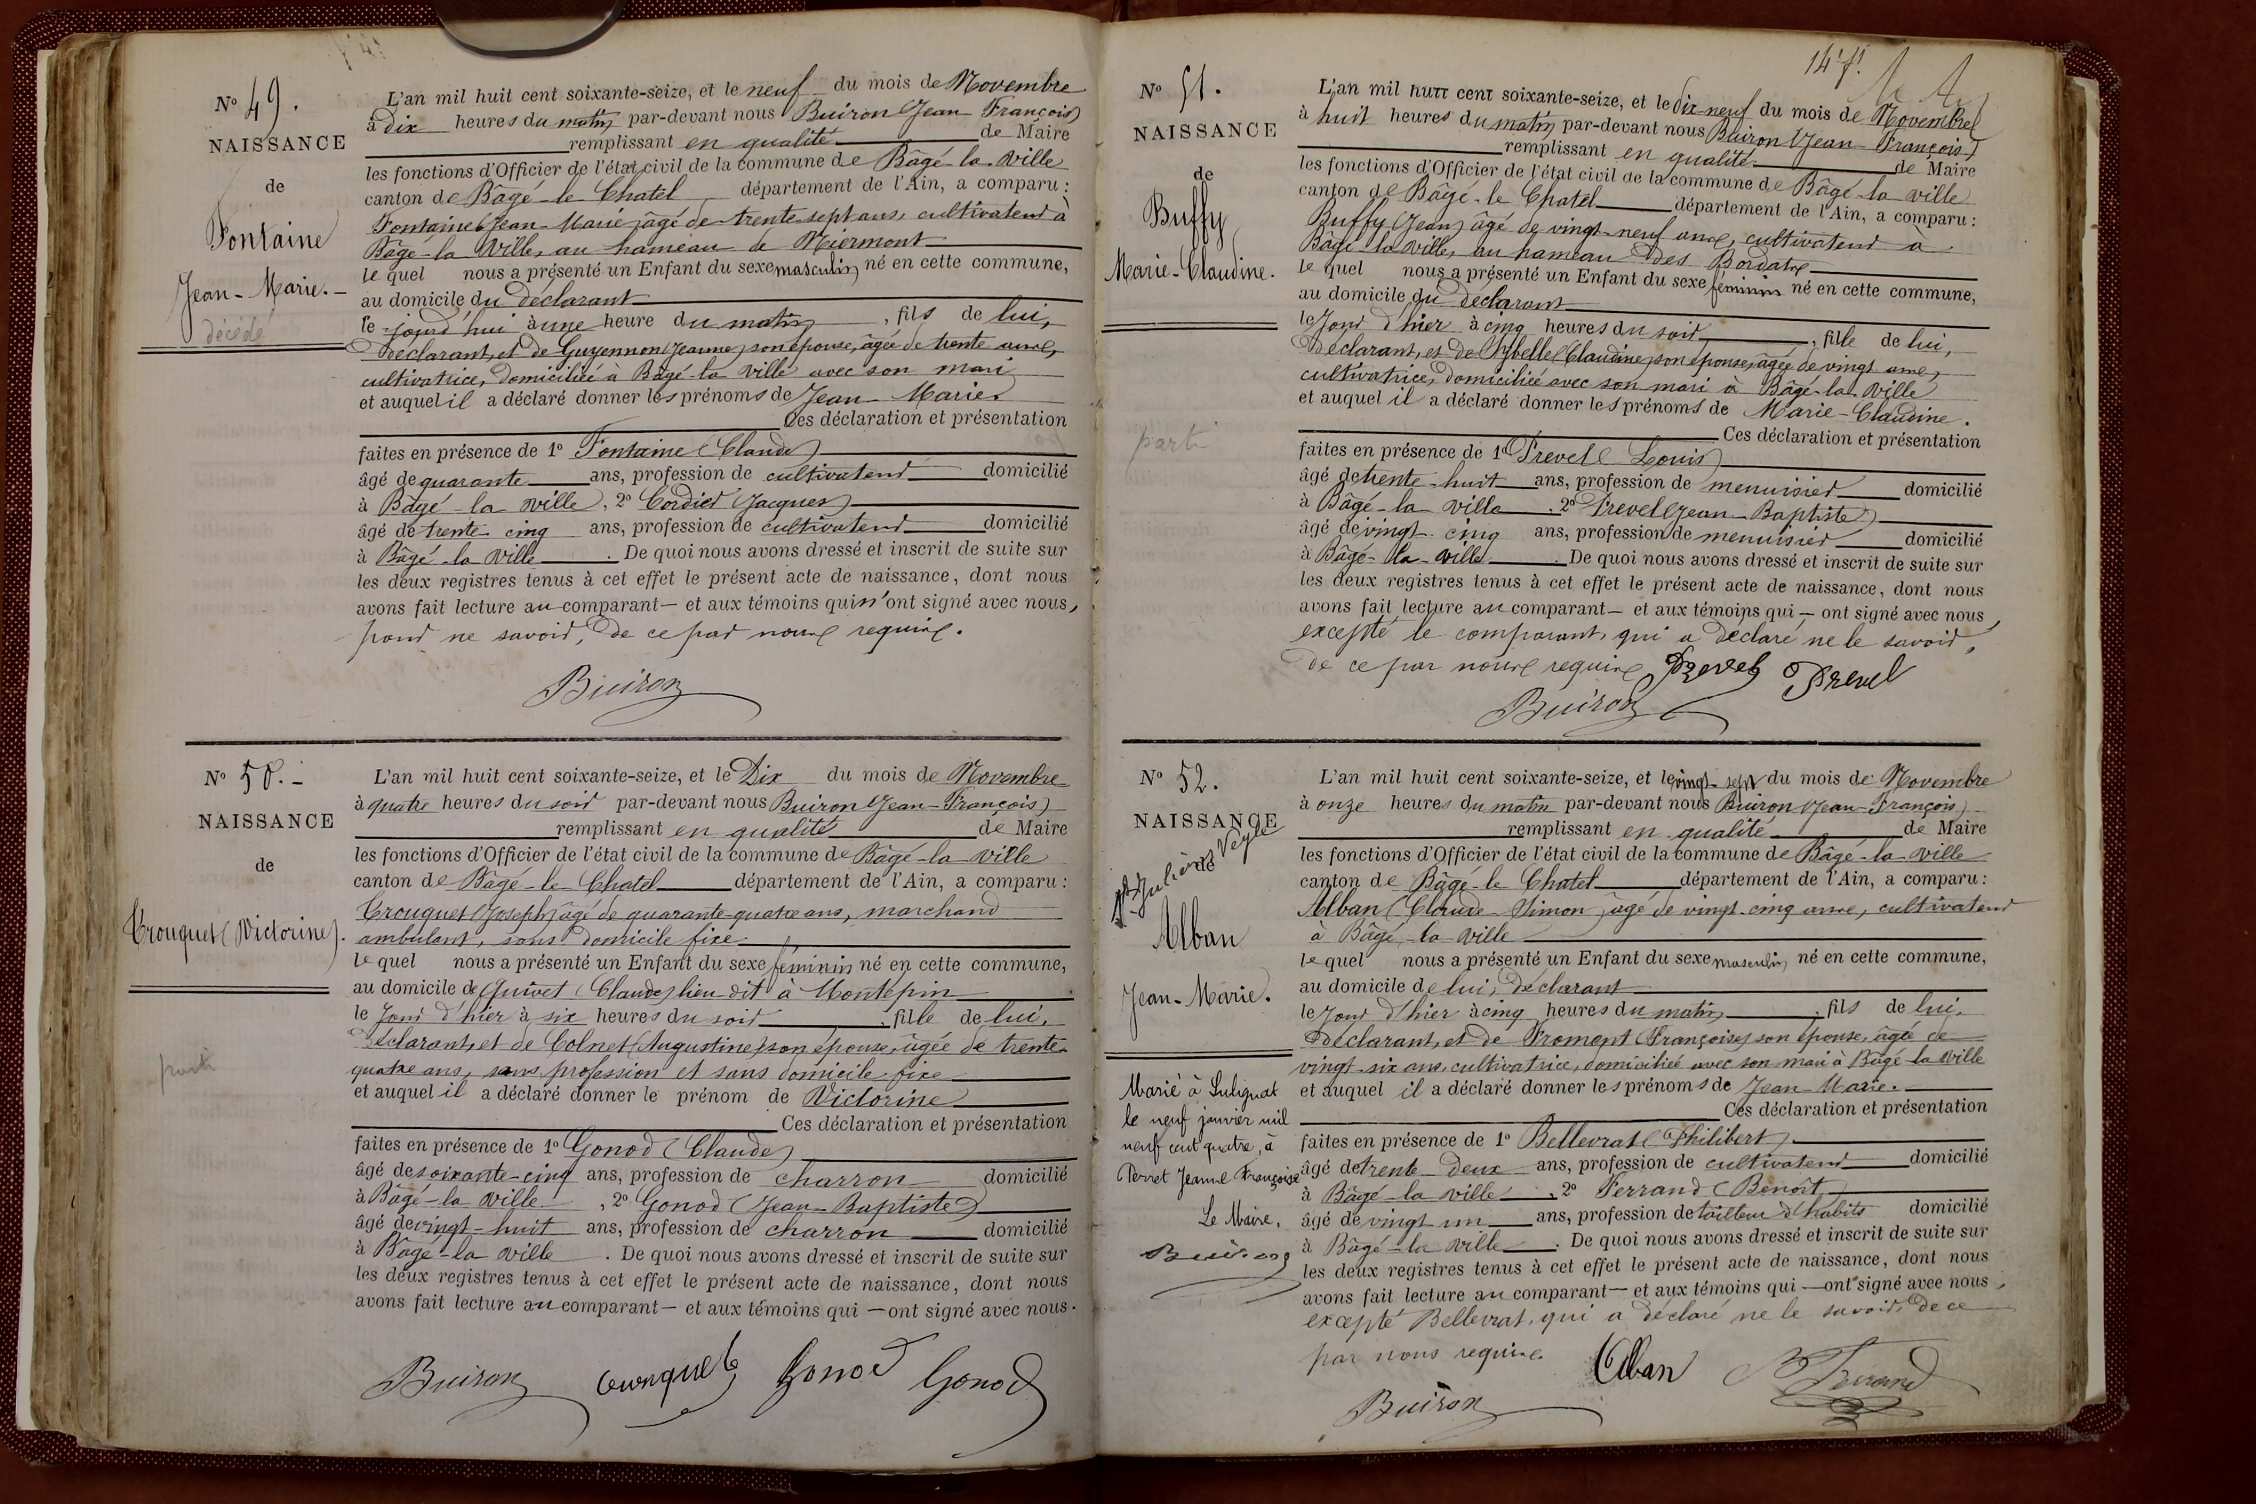 Nº 49.
NAISSANCE
de
Fontaine
Jean-Marie.
décédé
L'an mil huit cent soixante-seize, et le neuf du mois de Novembre
à dix heures du matin par-devant nous Buiron (Jean François)
remplissant en qualité de Maire
les fonctions d'Officier de l'état civil de la commune de Bâgé-la-Ville
canton de Bâgé-le-Chatel département de l'Ain, a comparu :
Fontaine (Jean-Marie) âgé de trente-sept ans, cultivateur à
Bâgé-la-Ville, au hameau de Miermont
le quel nous a présenté un Enfant du sexe masculin né en cette commune,
au domicile du déclarant
le jourd'hui à une heure du matin, fils de lui,
déclarant, et de Guyennon (Jeanne) son épouse, âgée de trente ans,
cultivatrice, domiciliée à Bâgé-la-Ville avec son mari
et auquel il a déclaré donner les prénoms de Jean-Marie.
Ces déclaration et présentation
faites en présence de 1º Fontaine (Claude)
âgé de quarante ans, profession de cultivateur domicilié
à Bâgé-la-Ville, 2º Cordier (Jacques)
âgé de trente-cinq ans, profession de cultivateur domicilié
à Bâgé-la-Ville. De quoi nous avons dressé et inscrit de suite sur
les deux registres tenus à cet effet le présent acte de naissance, dont nous
avons fait lecture au comparant — et aux témoins qui n'ont signé avec nous,
pour ne savoir, de ce par nous requis.
Buiron
Nº 50.
NAISSANCE
de
Crouquet (Victorine).
parti
L'an mil huit cent soixante-seize, et le Dix du mois de Novembre
à quatre heures du soir par-devant nous Buiron (Jean-François)
remplissant en qualité de Maire
les fonctions d'Officier de l'état civil de la commune de Bâgé-la-Ville
canton de Bâgé-le-Chatel département de l'Ain, a comparu :
Crouquet (Joseph) âgé de quarante-quatre ans, marchand
ambulant, sans domicile fixe
le quel nous a présenté un Enfant du sexe féminin né en cette commune,
au domicile de Guivet (Claude) lieu-dit à Montépin
le jour d'hier à six heures du soir, fille de lui,
déclarant, et de Colnet (Augustine) son épouse, âgée de trente-
quatre ans, sans profession et sans domicile fixe
et auquel il a déclaré donner le prénom de Victorine
Ces déclaration et présentation
faites en présence de 1º Gonod (Claude)
âgé de soixante-cinq ans, profession de charron domicilié
à Bâgé-la-Ville, 2º Gonod (Jean-Baptiste)
âgé de vingt-huit ans, profession de charron domicilié
à Bâgé-la-Ville. De quoi nous avons dressé et inscrit de suite sur
les deux registres tenus à cet effet le présent acte de naissance, dont nous
avons fait lecture au comparant — et aux témoins qui — ont signé avec nous.
Buiron Crouquet Gonod Gonod
Nº 51.
NAISSANCE
de
Buffy
Marie-Claudine.
parti
L'an mil huit cent soixante-seize, et le dix-neuf du mois de Novembre
à huit heures du matin par-devant nous Buiron (Jean-François)
remplissant en qualité de Maire
les fonctions d'Officier de l'état civil de la commune de Bâgé-la-Ville
canton de Bâgé-le-Chatel département de l'Ain, a comparu :
Buffy (Jean) âgé de vingt-neuf ans, cultivateur à
Bâgé-la-Ville, au hameau des Bordats
le quel nous a présenté un Enfant du sexe féminin né en cette commune,
au domicile du déclarant
le jour d'hier à cinq heures du soir, fille de lui,
déclarant, et de Sybelle (Claudine) son épouse, âgée de vingt ans,
cultivatrice, domiciliée avec son mari à Bâgé-la-Ville
et auquel il a déclaré donner les prénoms de Marie-Claudine.
Ces déclaration et présentation
faites en présence de 1º Prevel (Louis)
âgé de trente-huit ans, profession de menuisier domicilié
à Bâgé-la-Ville. 2º Prevel (Jean-Baptiste)
âgé de vingt-cinq ans, profession de menuisier domicilié
à Bâgé-la-Ville. De quoi nous avons dressé et inscrit de suite sur
les deux registres tenus à cet effet le présent acte de naissance, dont nous
avons fait lecture au comparant — et aux témoins qui — ont signé avec nous
excepté le comparant, qui a déclaré ne le savoir,
de ce par nous requis. Prevel Prevel
Buiron
Nº 52.
NAISSANCE
de
St Julien s Veyle
Alban
Jean-Marie.
Marié à Sulignat
le neuf janvier mil
neuf cent quatre, à
Perret Jeanne Françoise
Le Maire,
Buiron
L'an mil huit cent soixante-seize, et le vingt-sept du mois de Novembre
à onze heures du matin par-devant nous Buiron (Jean-François)
remplissant en qualité de Maire
les fonctions d'Officier de l'état civil de la commune de Bâgé-la-Ville
canton de Bâgé-le-Chatel département de l'Ain, a comparu :
Alban (Claude-Simon) âgé de vingt-cinq ans, cultivateur
à Bâgé-la-Ville
le quel nous a présenté un Enfant du sexe masculin né en cette commune,
au domicile de lui, déclarant
le jour d'hier à cinq heures du matin, fils de lui,
déclarant, et de Froment (Françoise) son épouse, âgée de
vingt-six ans, cultivatrice, domiciliée avec son mari à Bâgé-la-Ville
et auquel il a déclaré donner les prénoms de Jean-Marie.
Ces déclaration et présentation
faites en présence de 1º Bellevrat (Philibert)
âgé de trente-deux ans, profession de cultivateur domicilié
à Bâgé-la-Ville. 2º Ferrand (Benoît)
âgé de vingt-un ans, profession de tailleur d'habits domicilié
à Bâgé-la-Ville. De quoi nous avons dressé et inscrit de suite sur
les deux registres tenus à cet effet le présent acte de naissance, dont nous
avons fait lecture au comparant — et aux témoins qui — ont signé avec nous,
excepté Bellevrat, qui a déclaré ne le savoir, de ce
par nous requis.
Alban B Ferrand
Buiron